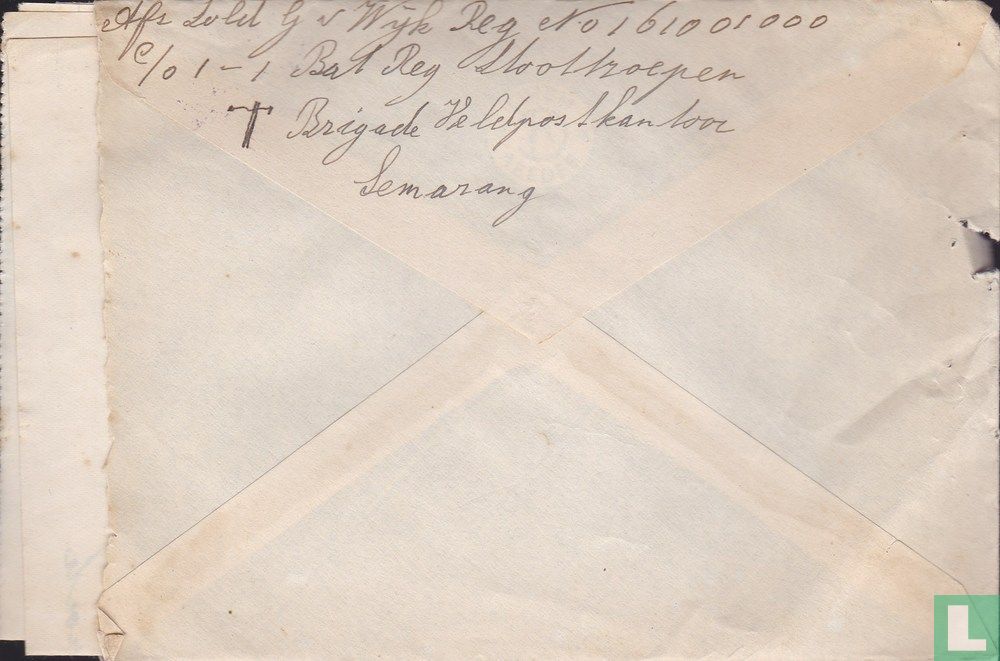 Afz Sold G v Wijk Reg No 161001000
c/o 1-1 Bat Reg Stoottroepen
T Brigade Veldpostkantoor
Semarang
L